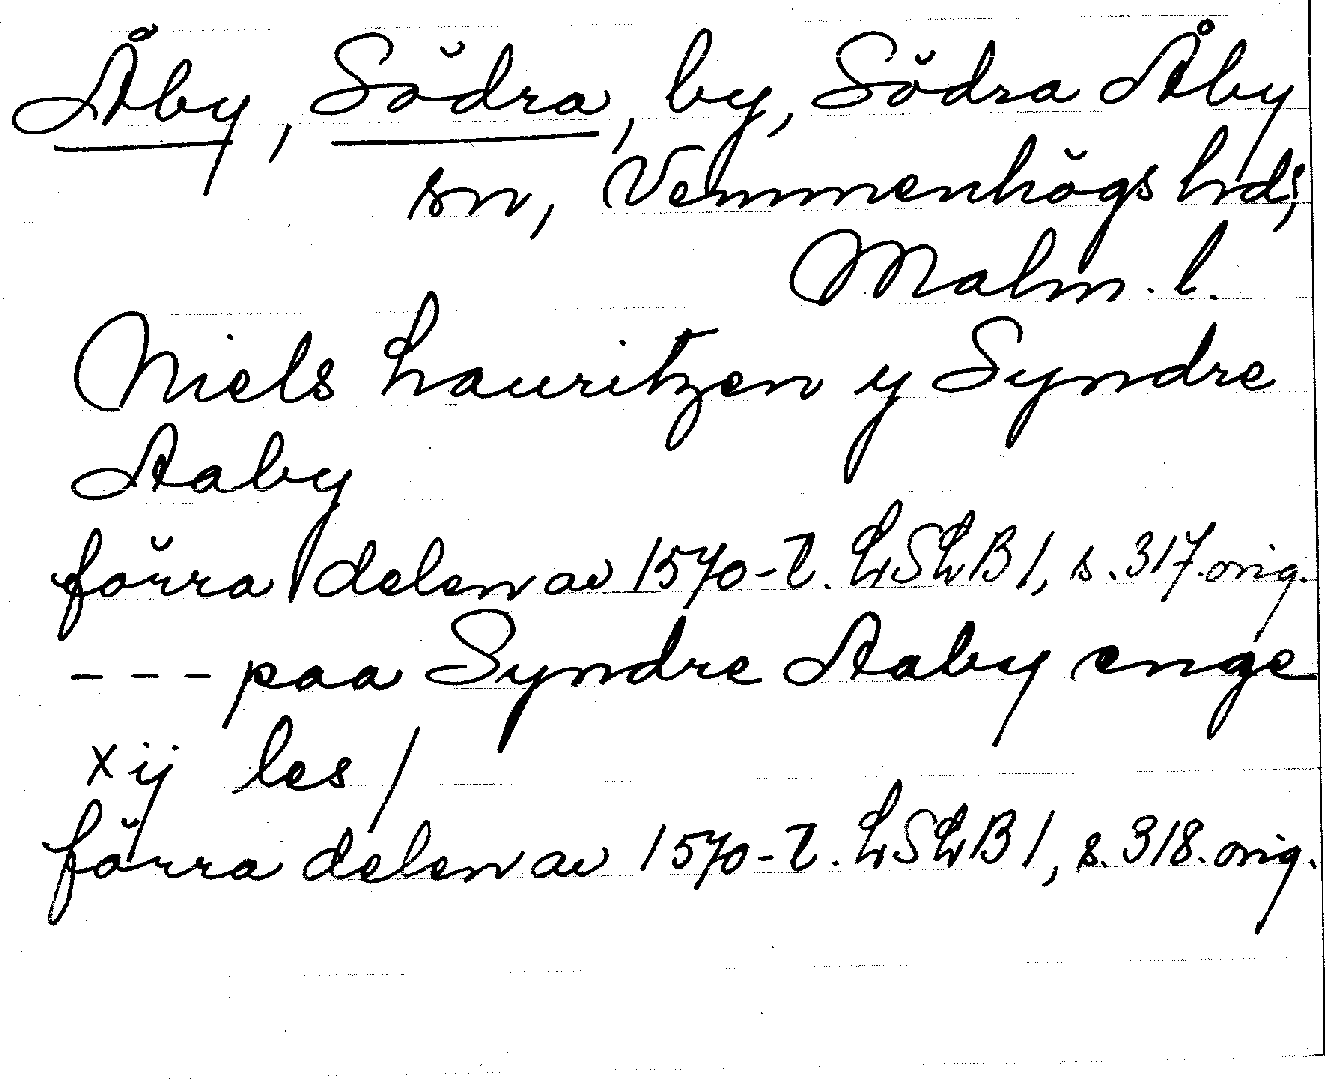 Åby, Södra, by, Södra Åby
sn, Vemmenhögs hrd,
Malm. l.
Niels Lauritzen y Syndre
Aaby
förra delen av 1570-t. LSLB 1, s. 317. orig.
- - - paa Syndre Aaby enge
xij les /
förra delen av 1570-t. LSLB 1, s. 318. orig.